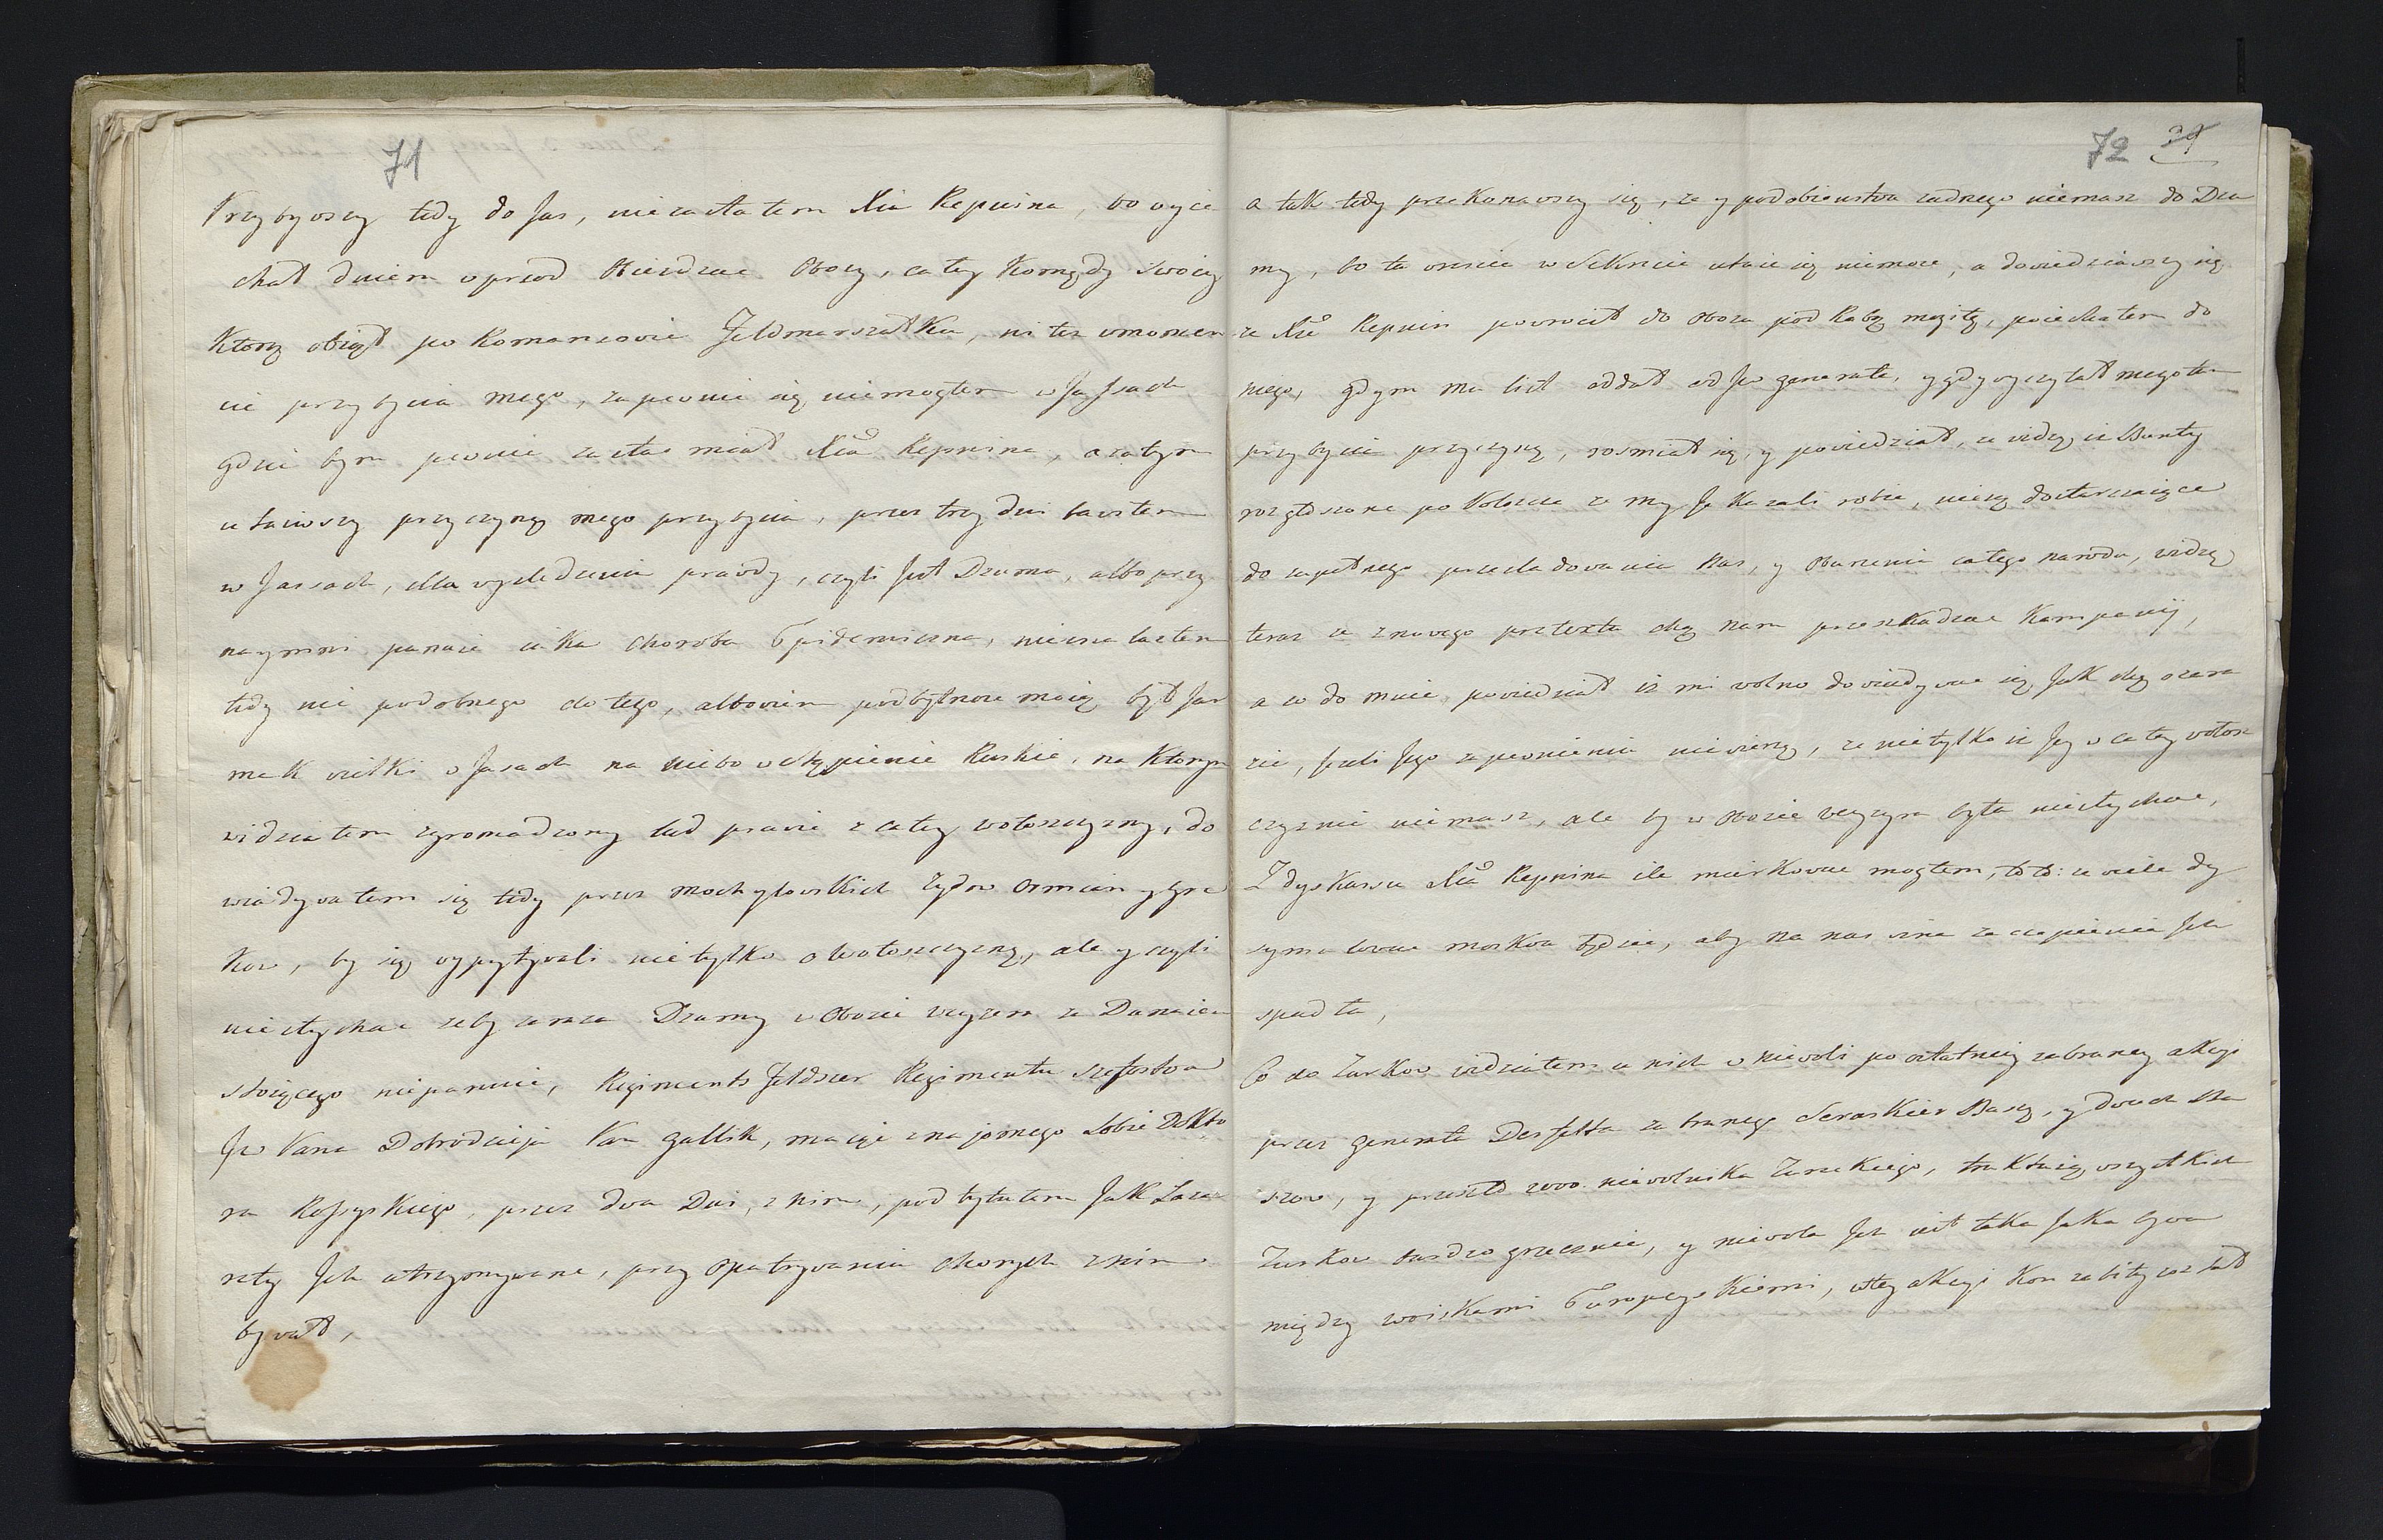 71
Przybywszy tedy do Jas, niezastałem Xia Repnina, bo wyie
chał dniem wprzod Obiezdzac Obozy, całey Komędy Swoiey
Ktorą obiął po Romanzowie Feldmarszałku, ni tez wmomen
cie przybycia mego, zapewnic się niemogłem w Jassach
gdzie bym pewnie zastac miał Xcia Repnina, a zatym
utaiwszy przyczynę mego przybycia, przez trzy dni bawiłem
w Jassach, dla wysledzenia prawdy, czyli jest Dzuma, albo przy
naymni panuie iaka choroba Epidemiczna, nieznalazłem
tedy nic podobnego do tego, albowiem podbytnosc moią był Jar
mak wielki w Jasach na niebowstąpienie Ruskie, na Ktorym
widziałem zgromadzony lud prawie z całey wołoszczyzny, do
wiadywałem się tedy przez mochylowskich Zydow Ormian y Gre
kow, by się wypytywali nietylko o Wołoszczyznę, ale y czyli
niesłychac zeby zaraza Dzumy w Obozie Wezyra za Dunaiem
stoiącego niepanuie, Regiments Feldszer Regimentu szefostwa
Jw Pana Dobrodzieja Pan Gallik, maiąc znajomego Sobie Dokto
ra Rossyiskiego, przez dwa Dni, z nim, pod tytułem Jak Laza
rety Jch utrzymywane, przy opatrywaniu chorych z nim
bywał,
72 37
a tak tedy przekonawszy się, ze y podobienstwa zadnego niemasz do Dzu
my, bo ta wreszcie w Sekrecie utaic się niemoze, a dowiedziawszy się
ze Xże Repnin powrocił do obozu pod Rabą mogiłę, poiechałem do
niego, gdym mu list oddał od Jw Generała, y gdy wyczytał mego tam
przybycia przyczynę, rosmiał się, y powiedział, ze widzę, iz Bunty
rozgłszone po Polszcze ze my Je Kazali robic, niesą dostarczaiące
do zupełnego przesladowania Nas, y Oburzenia całego narodu, widzę
teraz ze znowego pretextu chcą nam przeszkadzac Kampanij,
a co do mnie powiedział iz mi wolno dowiadywac się Jak chcę o zara
zie, Jezeli Jego zapewnieniu niewierzę, ze nietylko iz Jey w całey wołosz
czyznie niemasz, ale by w Obozie Wezyra była niesłychac,
Z dyskursu Xcia Repnina ile miarkowac mogłem, to to: ze wiele dy
symulowac moskwa będzie, aby na nas wina zaczepienia Jch
spadła,
Co do Turkow widziałem u nich w niewoli po ostatniey zebraney akcyi
przez Generała Derfelta zabranego Seraskier Baszę, y dwuch Ba
szow, y przeszło 2000. niewolnika Tureckiego, traktuią wszystkich
Turkow bardzo grzecznie, y niewola Jch iest taka Jaka bywa
między woiskami Europeyskiemi, wtey akcyi Kon zabity został